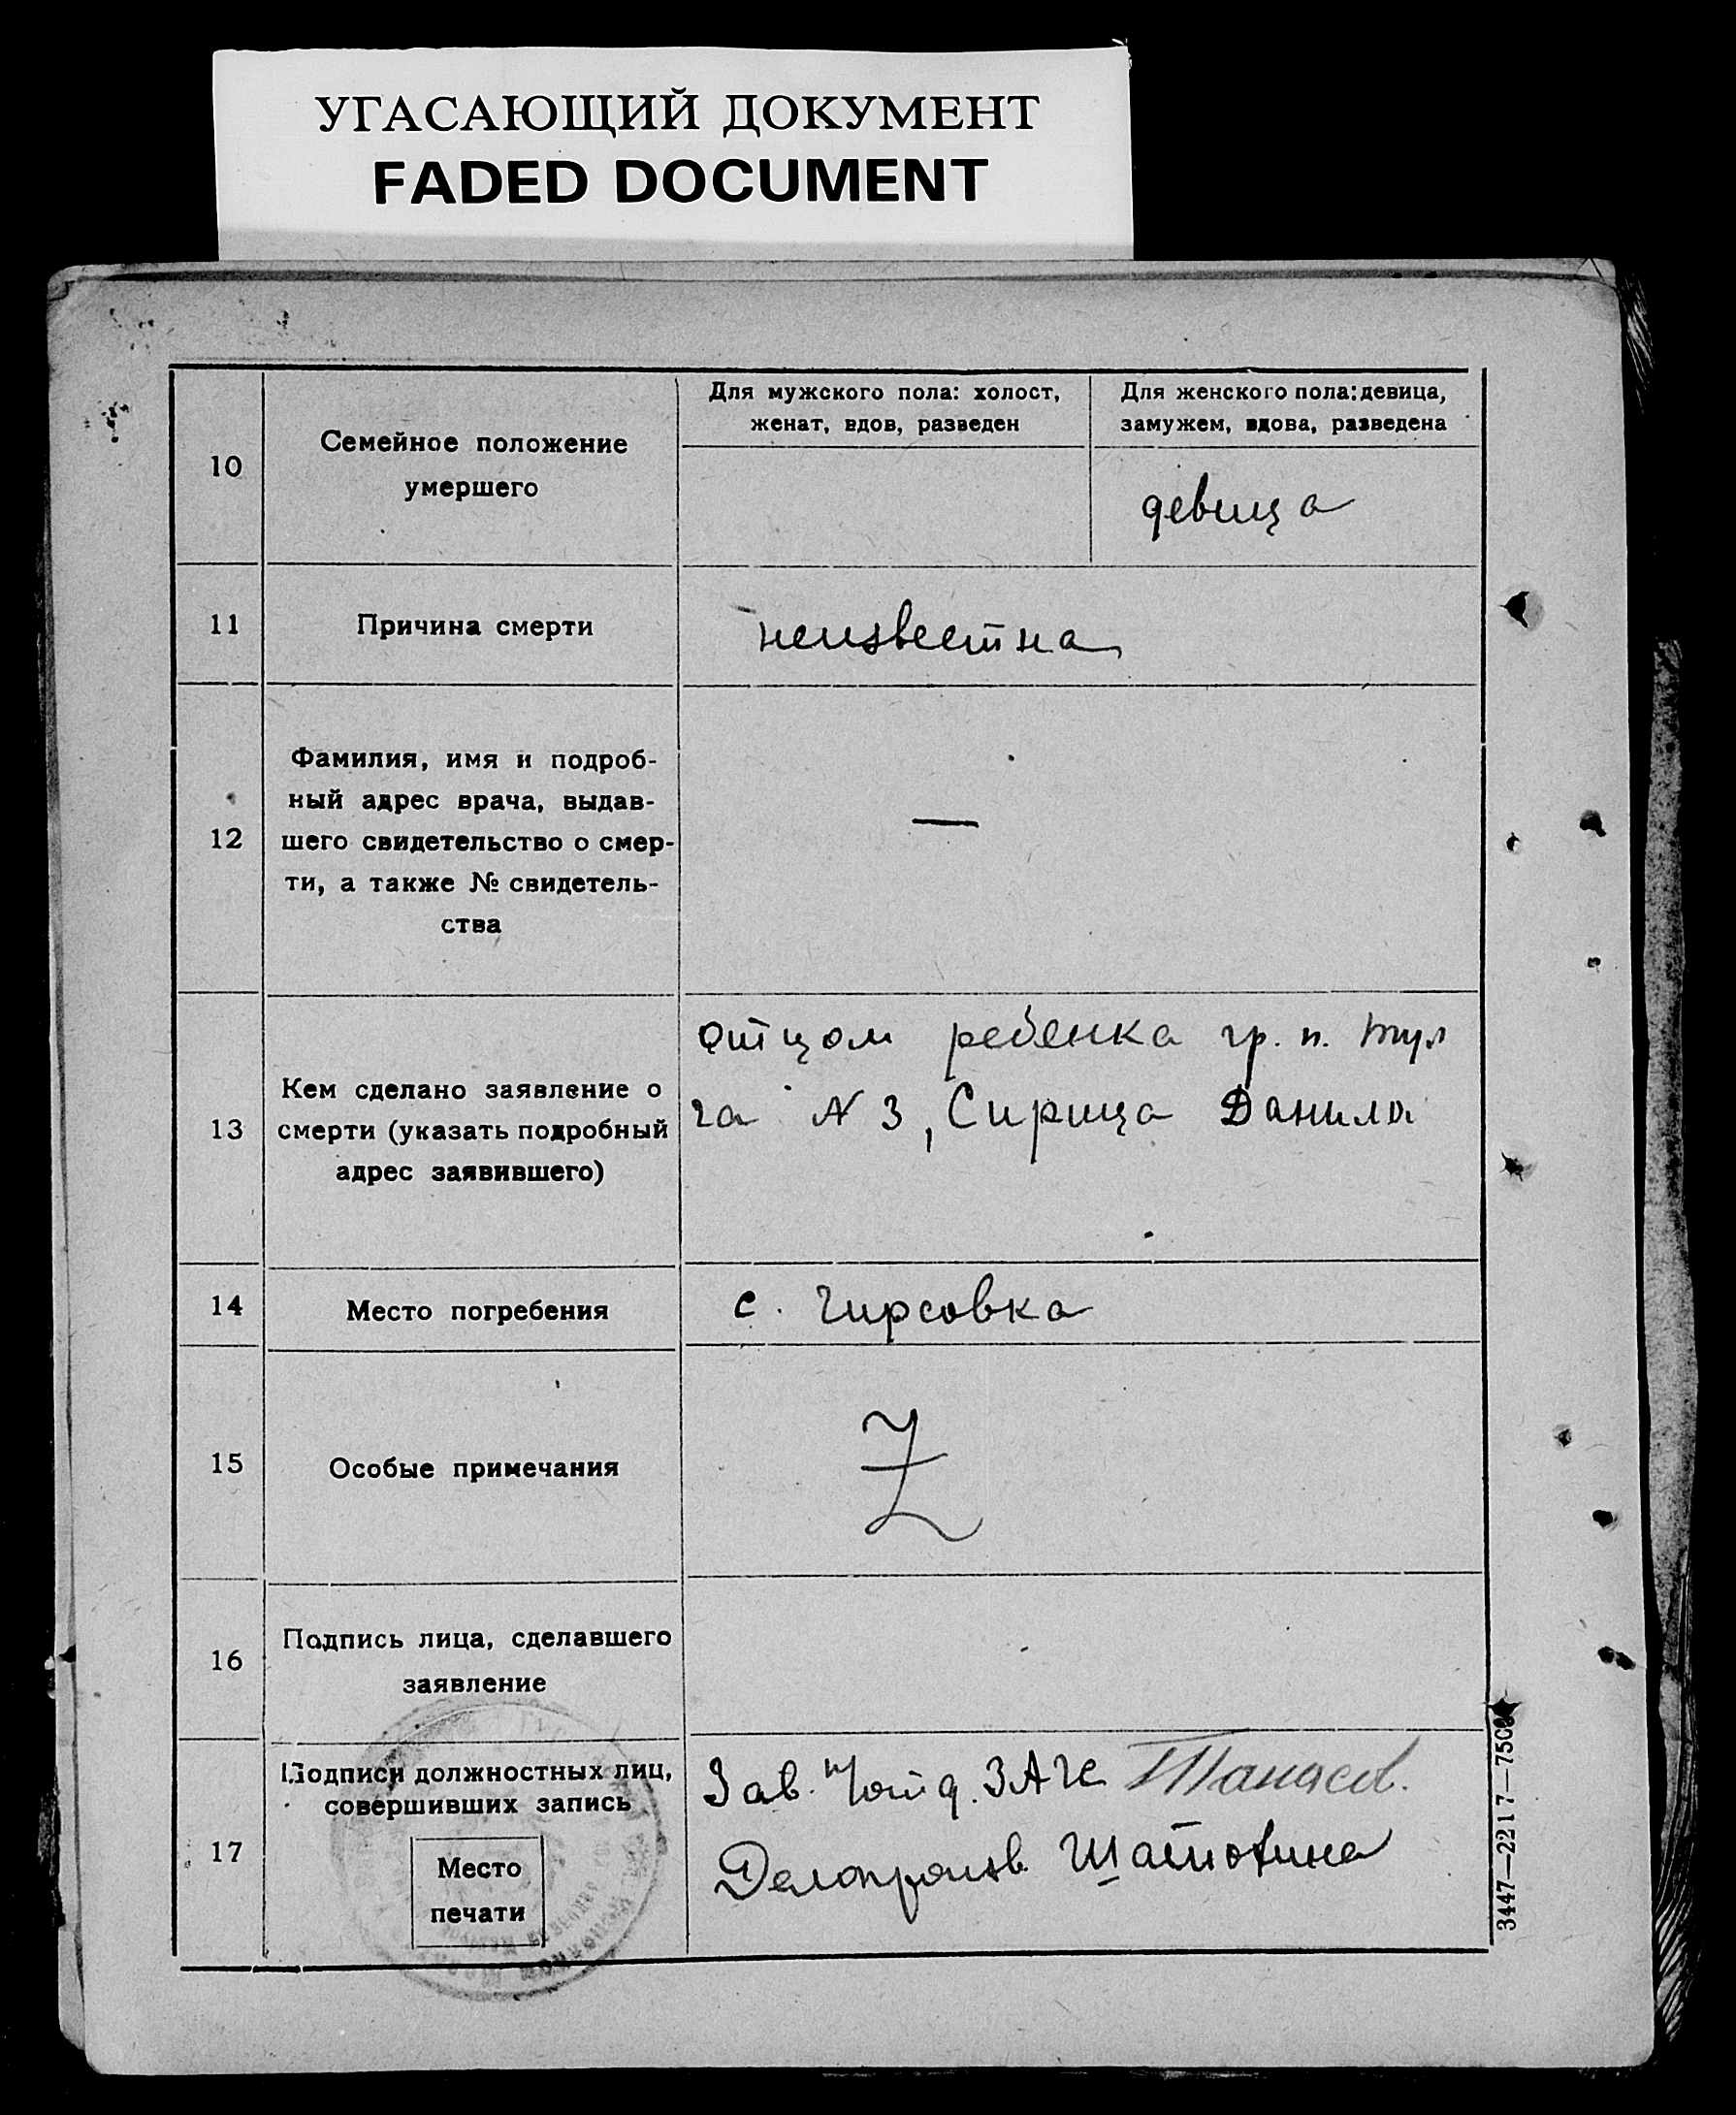 УГАСАЮЩИЙ ДОКУМЕНТ
FADED DOCUMENT
10
Семейное положение
умершего
Для мужского пола: холост,
женат, вдов, разведен
Для женского пола: девица,
замужем, вдова, разведена
девица
11
Причина смерти
неизвестна
12
Фамилия, имя и подроб-
ный адрес врача, выдав-
шего свидетельство о смер-
ти, а также № свидетель-
ства
—
13
Кем сделано заявление о
смерти (указать подробный
адрес заявившего)
Отцом ребенка гр. п.
га N 3, Сирица Данила
14
Место погребения
с. Гирсовка
15
Особые примечания
Z
16
Подпись лица, сделавшего
заявление
17
Подписи должностных лиц,
совершивших запись
Место
печати
Зав. ЗАГС
Делопроизв.
3447—2217—750